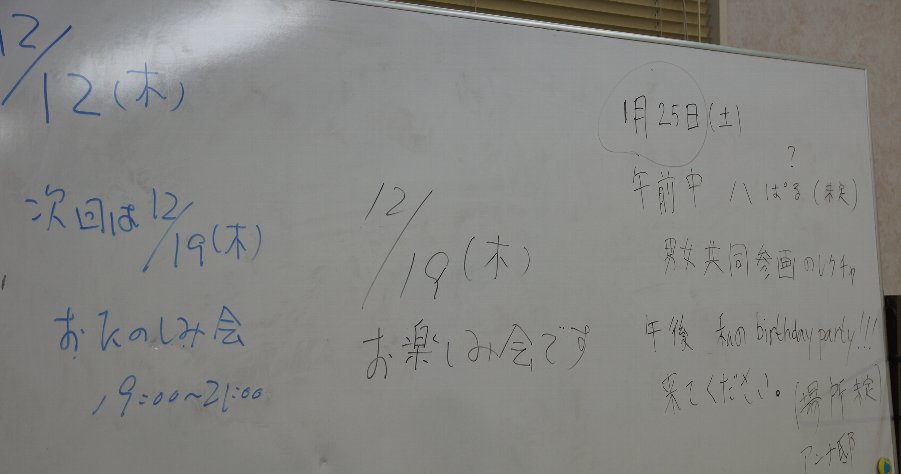 12/12(木)
次回は12/19(木)
おたのしみ会
19:00~21:00
12/19(木)
お楽しみ会です
1月25日(土)
?
午前中 八ぱる(未定)
男女共同参画のレクチャ
午後 私の birthday party!!!
来てください。(場所未定)
アンナ邸